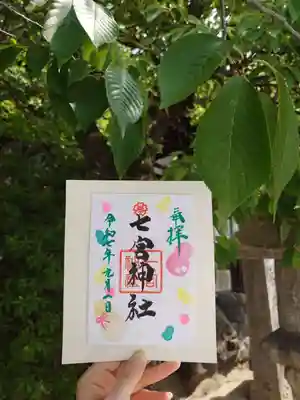 奉拝
七宮神社
令和七年九月一日